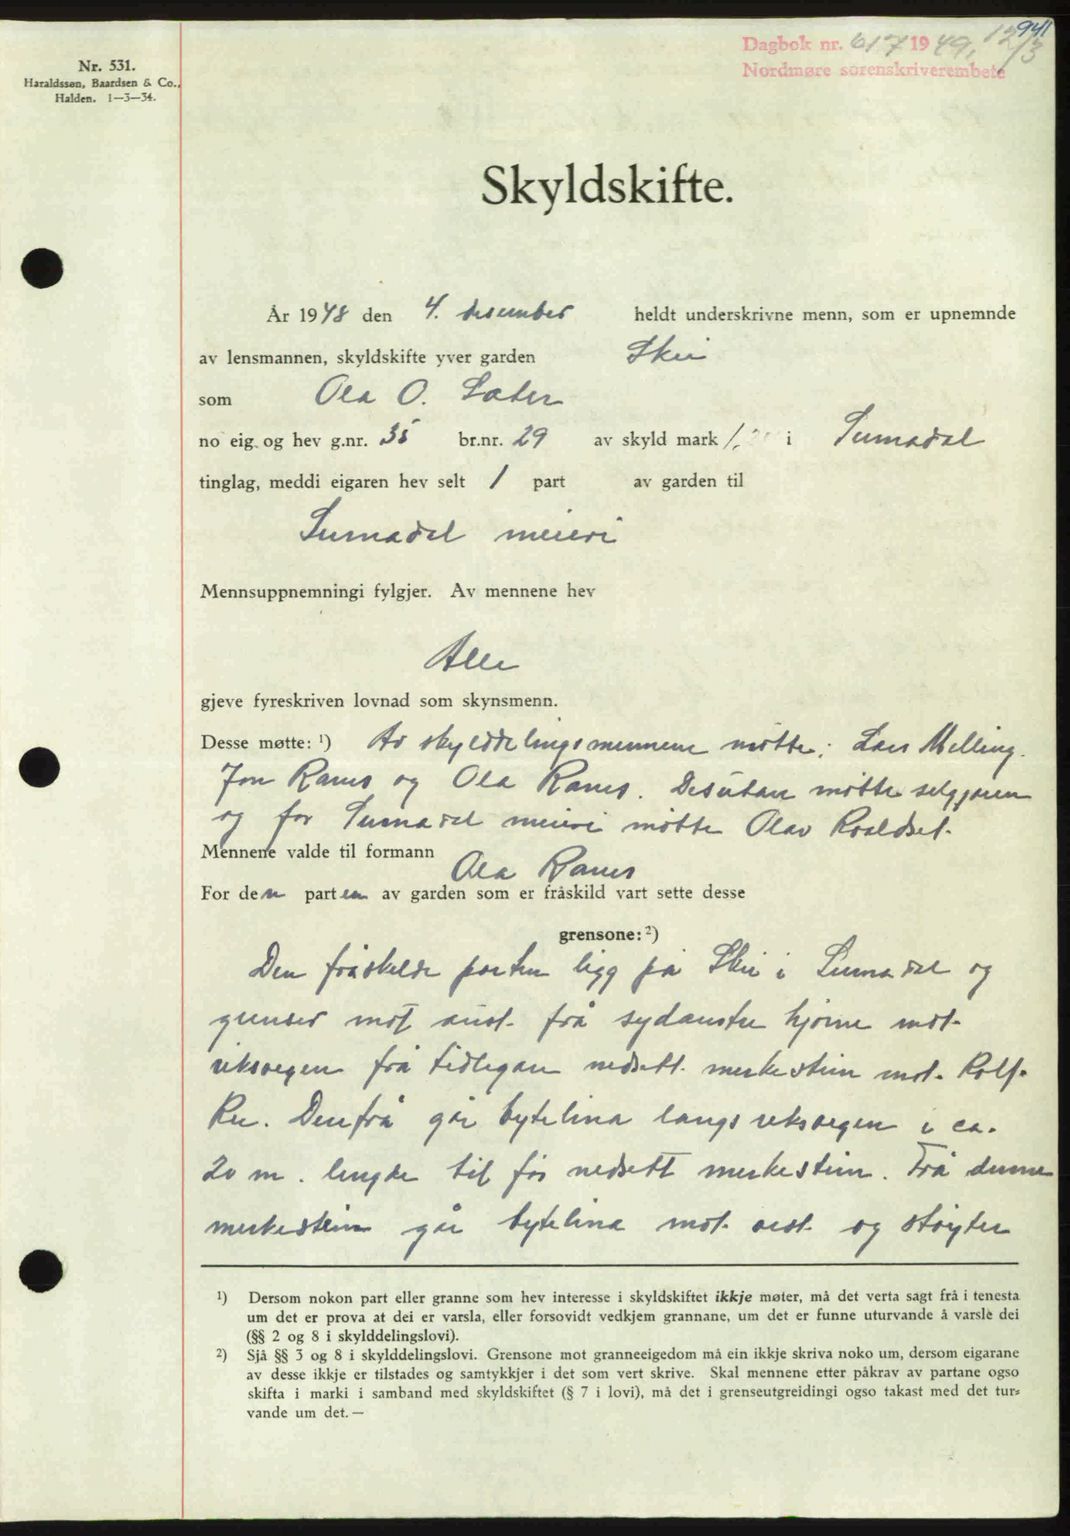 941
Dagbok nr. 617 1949, 12/3
Nordmøre sorenskriverembete
Nr. 531.
Haraldssøn, Baardsen & Co.,
Halden. 1—3—34.
Skyldskifte.
År 1948 den 4. desember heldt underskrivne menn, som er upnemnde
av lensmannen, skyldskifte yver garden Skei
som Ola O. Sæter
no eig og hev g.nr. 35 br.nr. 29 av skyld mark 1, i Surnadal
tinglag, meddi eigaren hev selt 1 part av garden til
Surnadal meieri
Mennsuppnemningi fylgjer. Av mennene hev
Alle
gjeve fyreskriven lovnad som skynsmenn.
Desse møtte: ¹) Av skylddelingsmennene møtte: Lars Melling.
Jon Ranes og Ola Ranes. Desutan møtte selgjaren
og for Surnadal meieri møtte Olav Roaldset.
Mennene valde til formann Ola Ranes
For den parten av garden som er fråskild vart sette desse
grensone: ²)
Den fråskilde parten ligg på Skei i Surnadal og
grenser mot aust. frå sydaustre hjørne mot
riksvegen frå tidlegare nedsett merkestein mot Rolf
Ree. Derifrå går bytelina langs riksvegen i ca.
20 m. lengde til før nedsett merkestein. Frå denne
merkestein går bytelina mot vest og støyter
¹) Dersom nokon part eller granne som hev interesse i skyldskiftet ikkje møter, må det verta sagt frå i tenesta
um det er prova at dei er varsla, eller forsovidt vedkjem grannane, um det er funne uturvande å varsle dei
(§§ 2 og 8 i skylddelingslovi).
²) Sjå §§ 3 og 8 i skylddelingslovi. Grensone mot granneeigedom må ein ikkje skriva noko um, dersom eigarane
av desse ikkje er tilstades og samtykkjer i det som vert skrive. Skal mennene etter påkrav av partane ogso
skifta i marki i samband med skyldskiftet (§ 7 i lovi), må det i grenseutgreidingi ogso takast med det tur-
vande um det.—